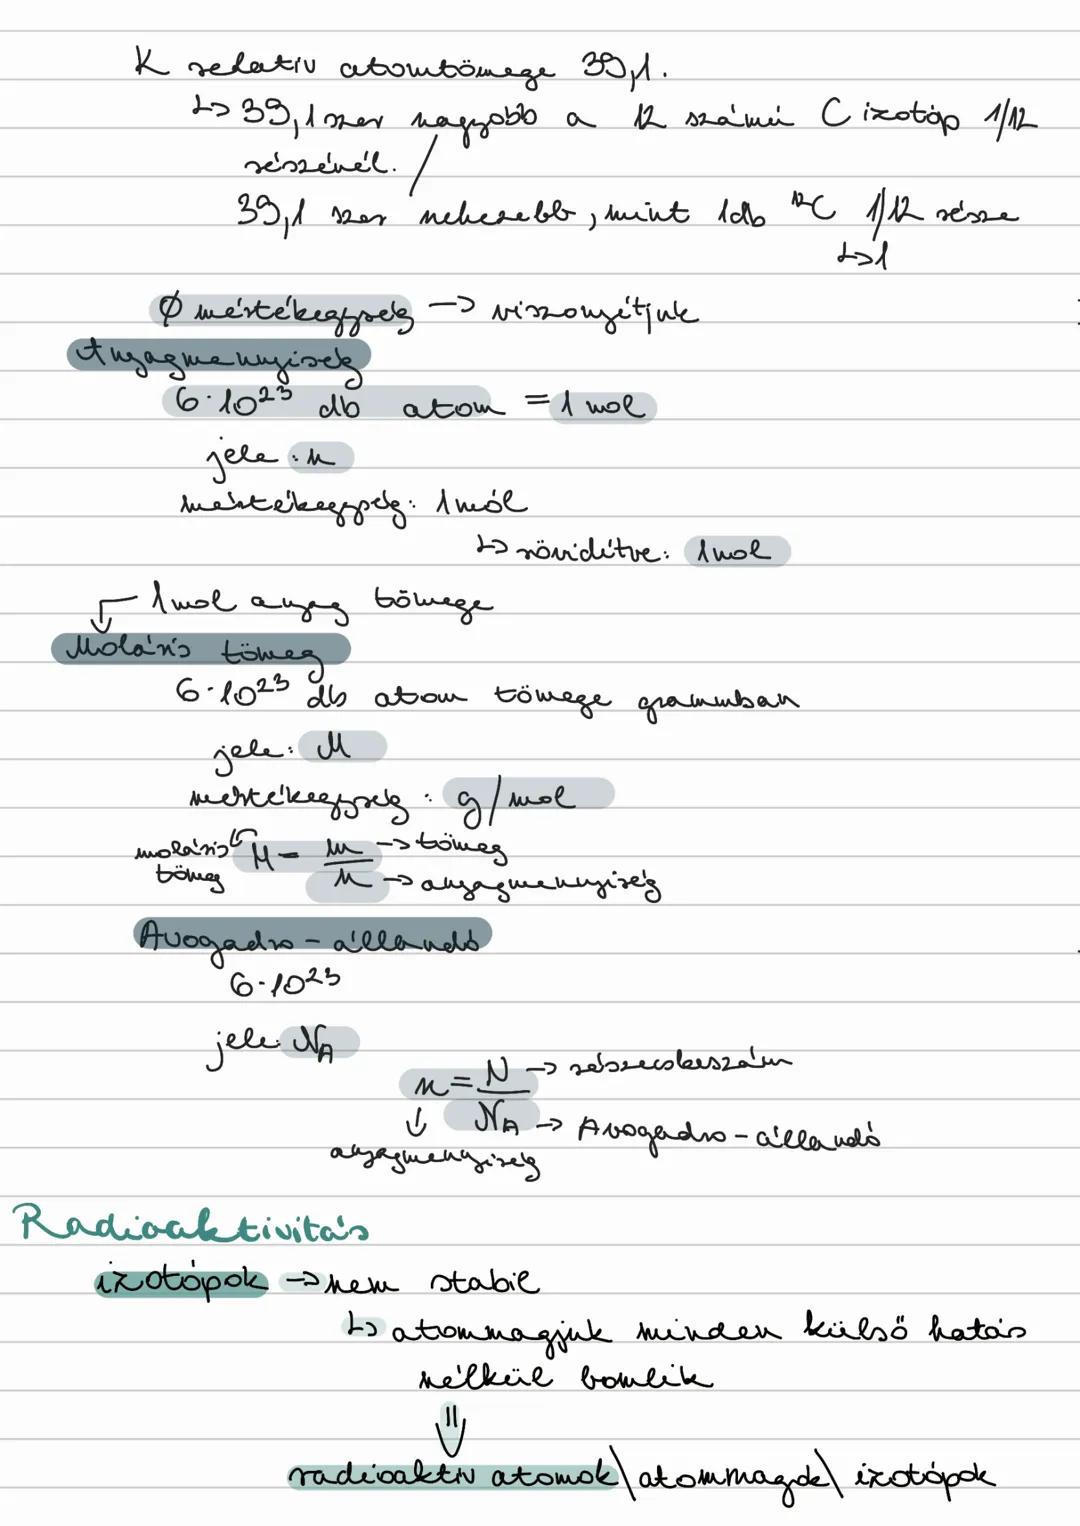 K relatív atomtömege 39,1.
↳ 39,1szer nagyobb a 12 számú C izotóp 1/12
részénél.
39,1 szer nehezebb, mint 1db ¹²C 1/12 része
↳1
Ø mértékegység → viszonyítjuk
Anyagmennyiség
6·10²³ db atom = 1 mol
jele: n
mértékegység: 1mól
↳ rövidítve: 1mol
1mol anyag tömege
Moláris tömeg
6·10²³ db atom tömege grammban
jele: M
mértékegység: g/mol
moláris tömeg M = m → tömeg
n → anyagmennyiség
Avogadro-állandó
6·10²³
jele: N_A
n = N → részecskeszám
N_A → Avogadro-állandó
anyagmennyiség
Radioaktivitás
izotópok → nem stabil
↳ atommagjuk minden külső hatás
nélkül bomlik
⇓
radioaktív atomok\atommagok\ izotópok